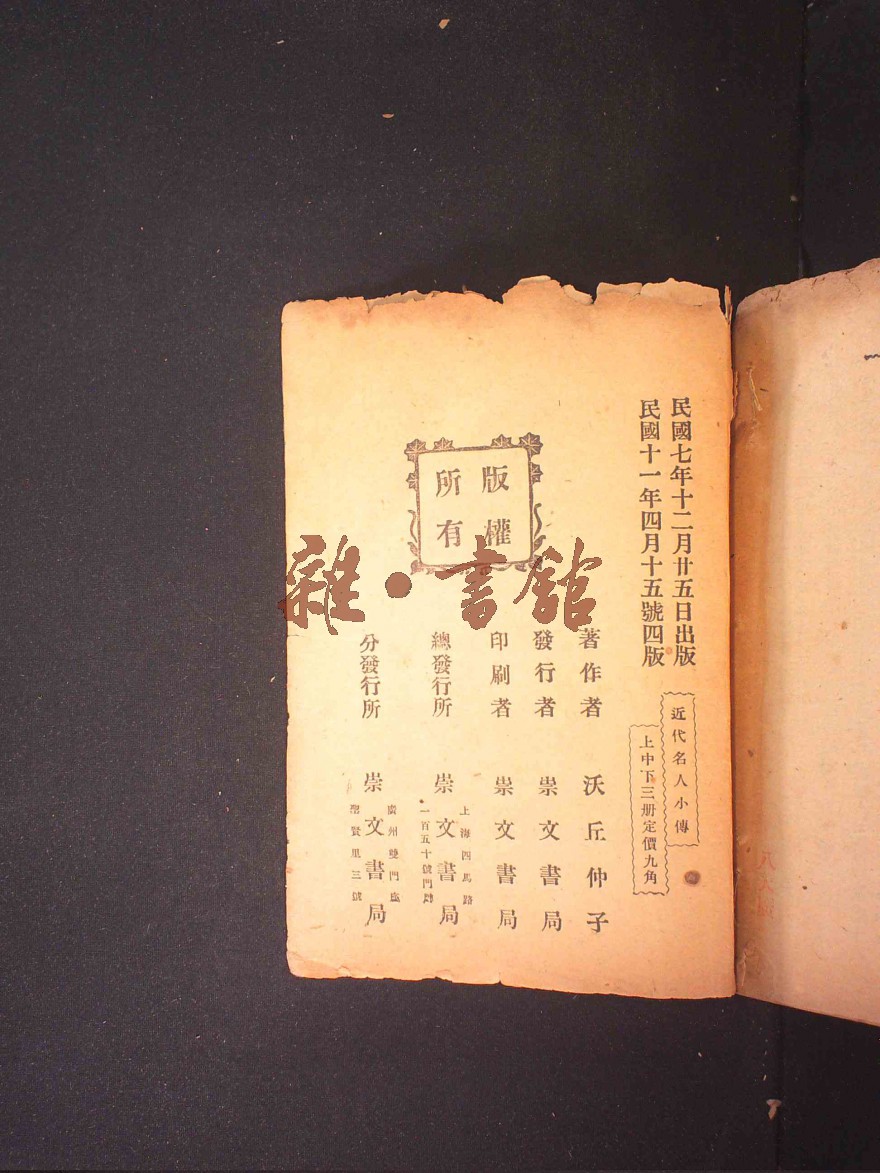 民國七年十二月廿五日出版
民國十一年四月十五號四版
近代名人小傳
上中下三册定價九角
版權
所有
著作者 沃丘仲子
發行者 崇文書局
印刷者 崇文書局
總發行所 上海四馬路一百五十號門牌 崇文書局
分發行所 廣州雙門底聖賢里三號 崇文書局
雜·書館